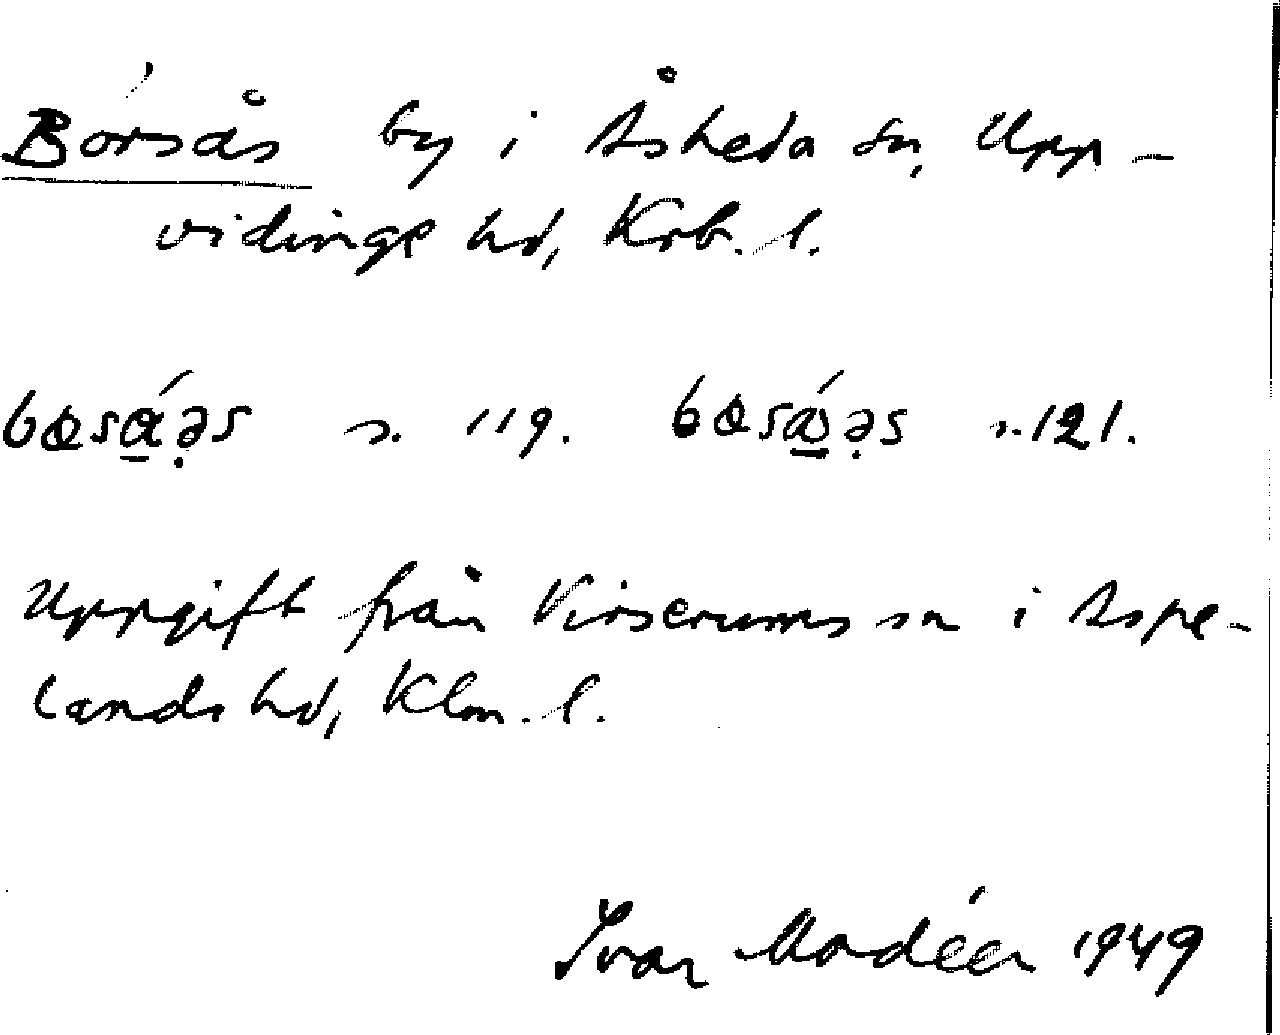 Bórsås by i Åsheda sn, Upp-
vidinge hd, Krb. l.
s. 119. s. 121.
Uppgift från Virserums sn i Aspe-
lands hd, Klm. l.
Ivar Modéer 1949